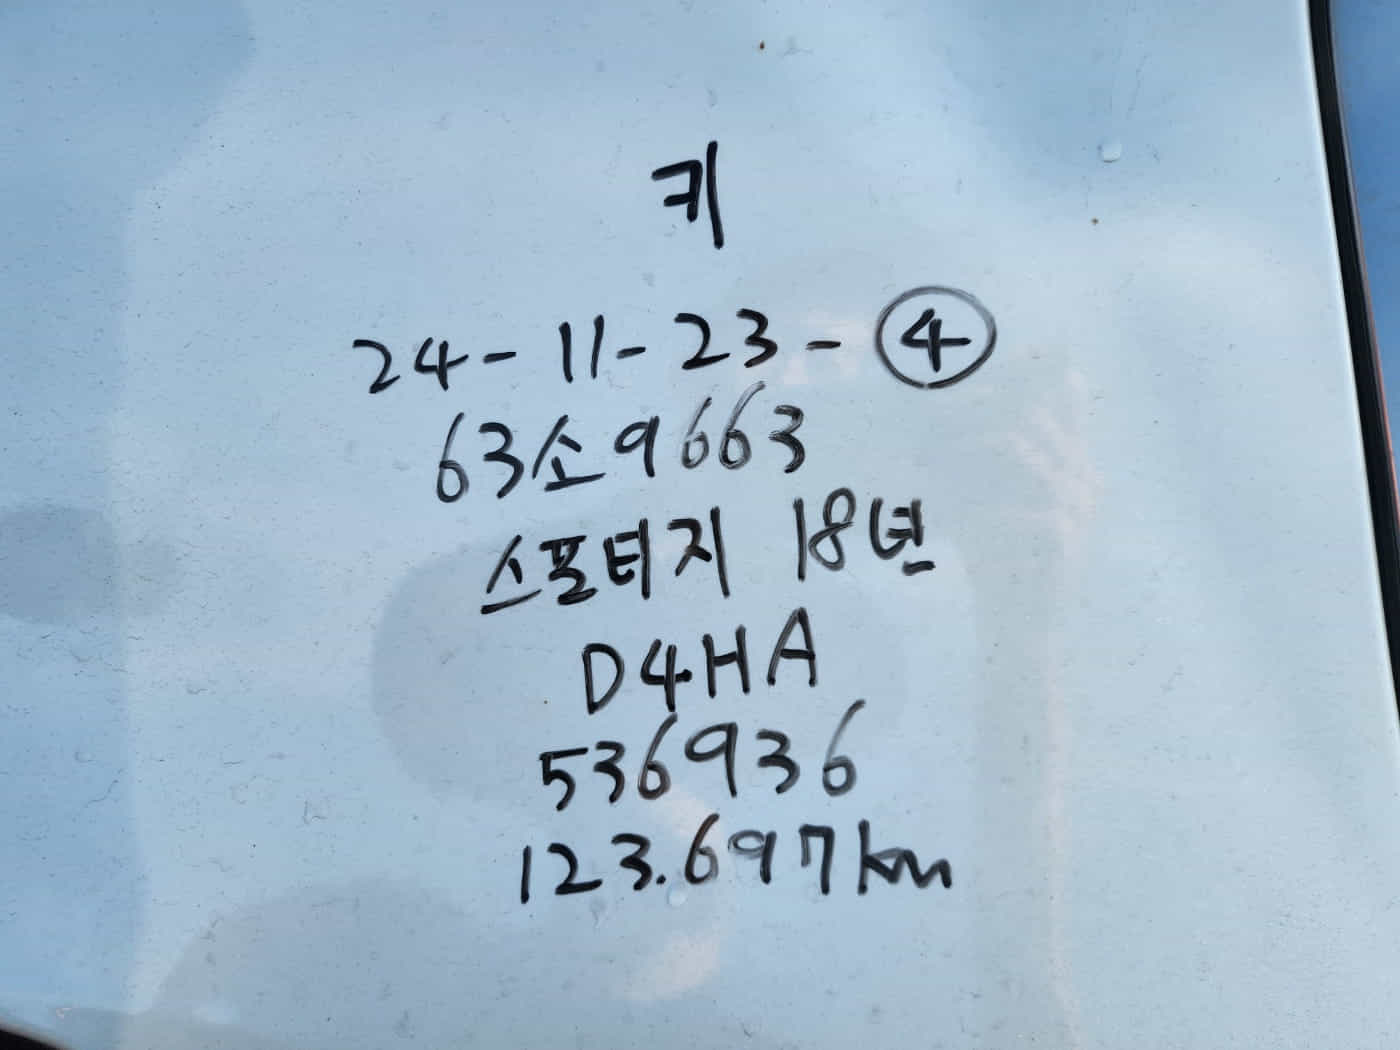 키
24-11-23-④
63소9663
스포티지 18년
D4HA
536936
123.697km